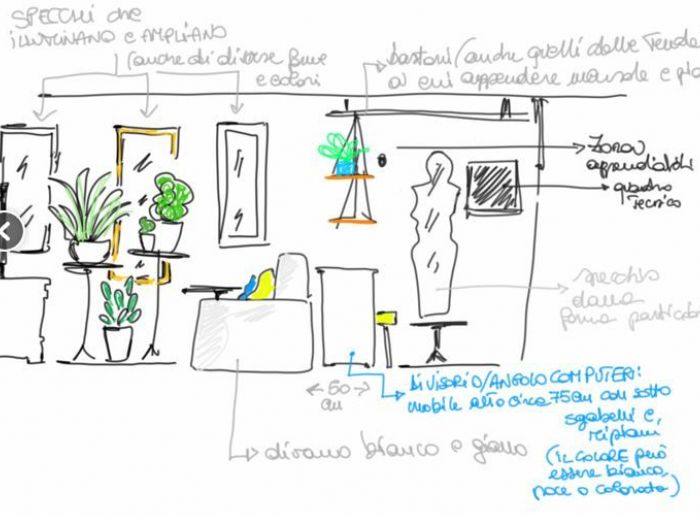 SPECCHI che
ILLUMINANO e AMPLIANO
(anche di diverse forme
e colori
bastoni (anche quelli delle tende
a cui appendere mensole e pia
zona
appendiabiti
quadro
tecnico
specchio
dalla
forma particolar
60
cm
DIVISORIO/ANGOLO COMPUTER:
mobile alto circa 75cm con sotto
sgabelli e,
ripiani
(IL COLORE può
essere bianco,
noce o colorato)
divano bianco e giallo